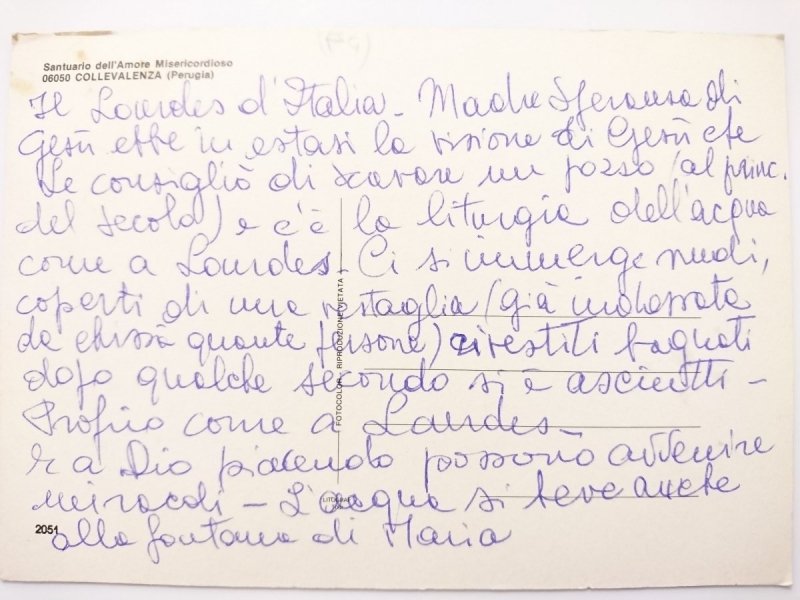 (PG)
Santuario dell'Amore Misericordioso
06050 COLLEVALENZA (Perugia)
Il Lourdes d'Italia - Madre Speranza di
Gesù ebbe in estasi la visione di Gesù che
le consigliò di scavare un pozzo (al princ.
del secolo) e c'è la liturgia dell'acqua
come a Lourdes. Ci si immerge nudi,
coperti di una vestaglia (già indossata
da chissà quante persone) rivestiti bagnati
dopo qualche secondo si è asciutti -
Proprio come a Lourdes -
E a Dio piacendo possono avvenire
miracoli - L'acqua si beve anche
alla fontana di Maria
FOTOCOLOR - RIPRODUZIONE VIETATA
2051